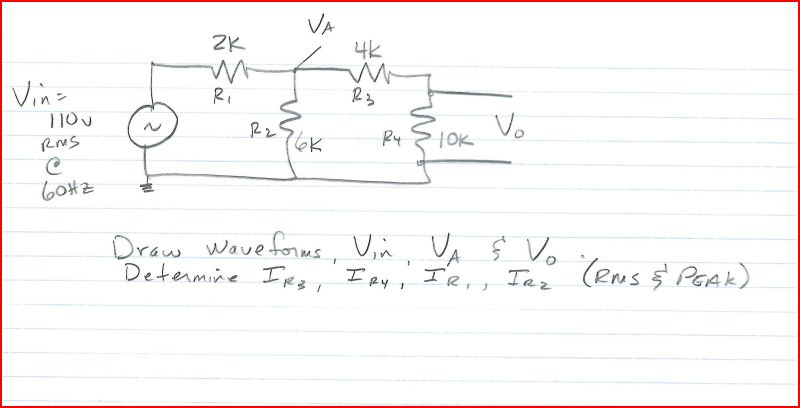 VA
2K
4K
Vin=
110v
RMS
@
60HZ
~
R1
R2
6K
R3
R4
10K
Vo
Draw waveforms, Vin, VA & Vo.
Determine IR3, IR4, IR1, IR2 (RMS & PEAK)